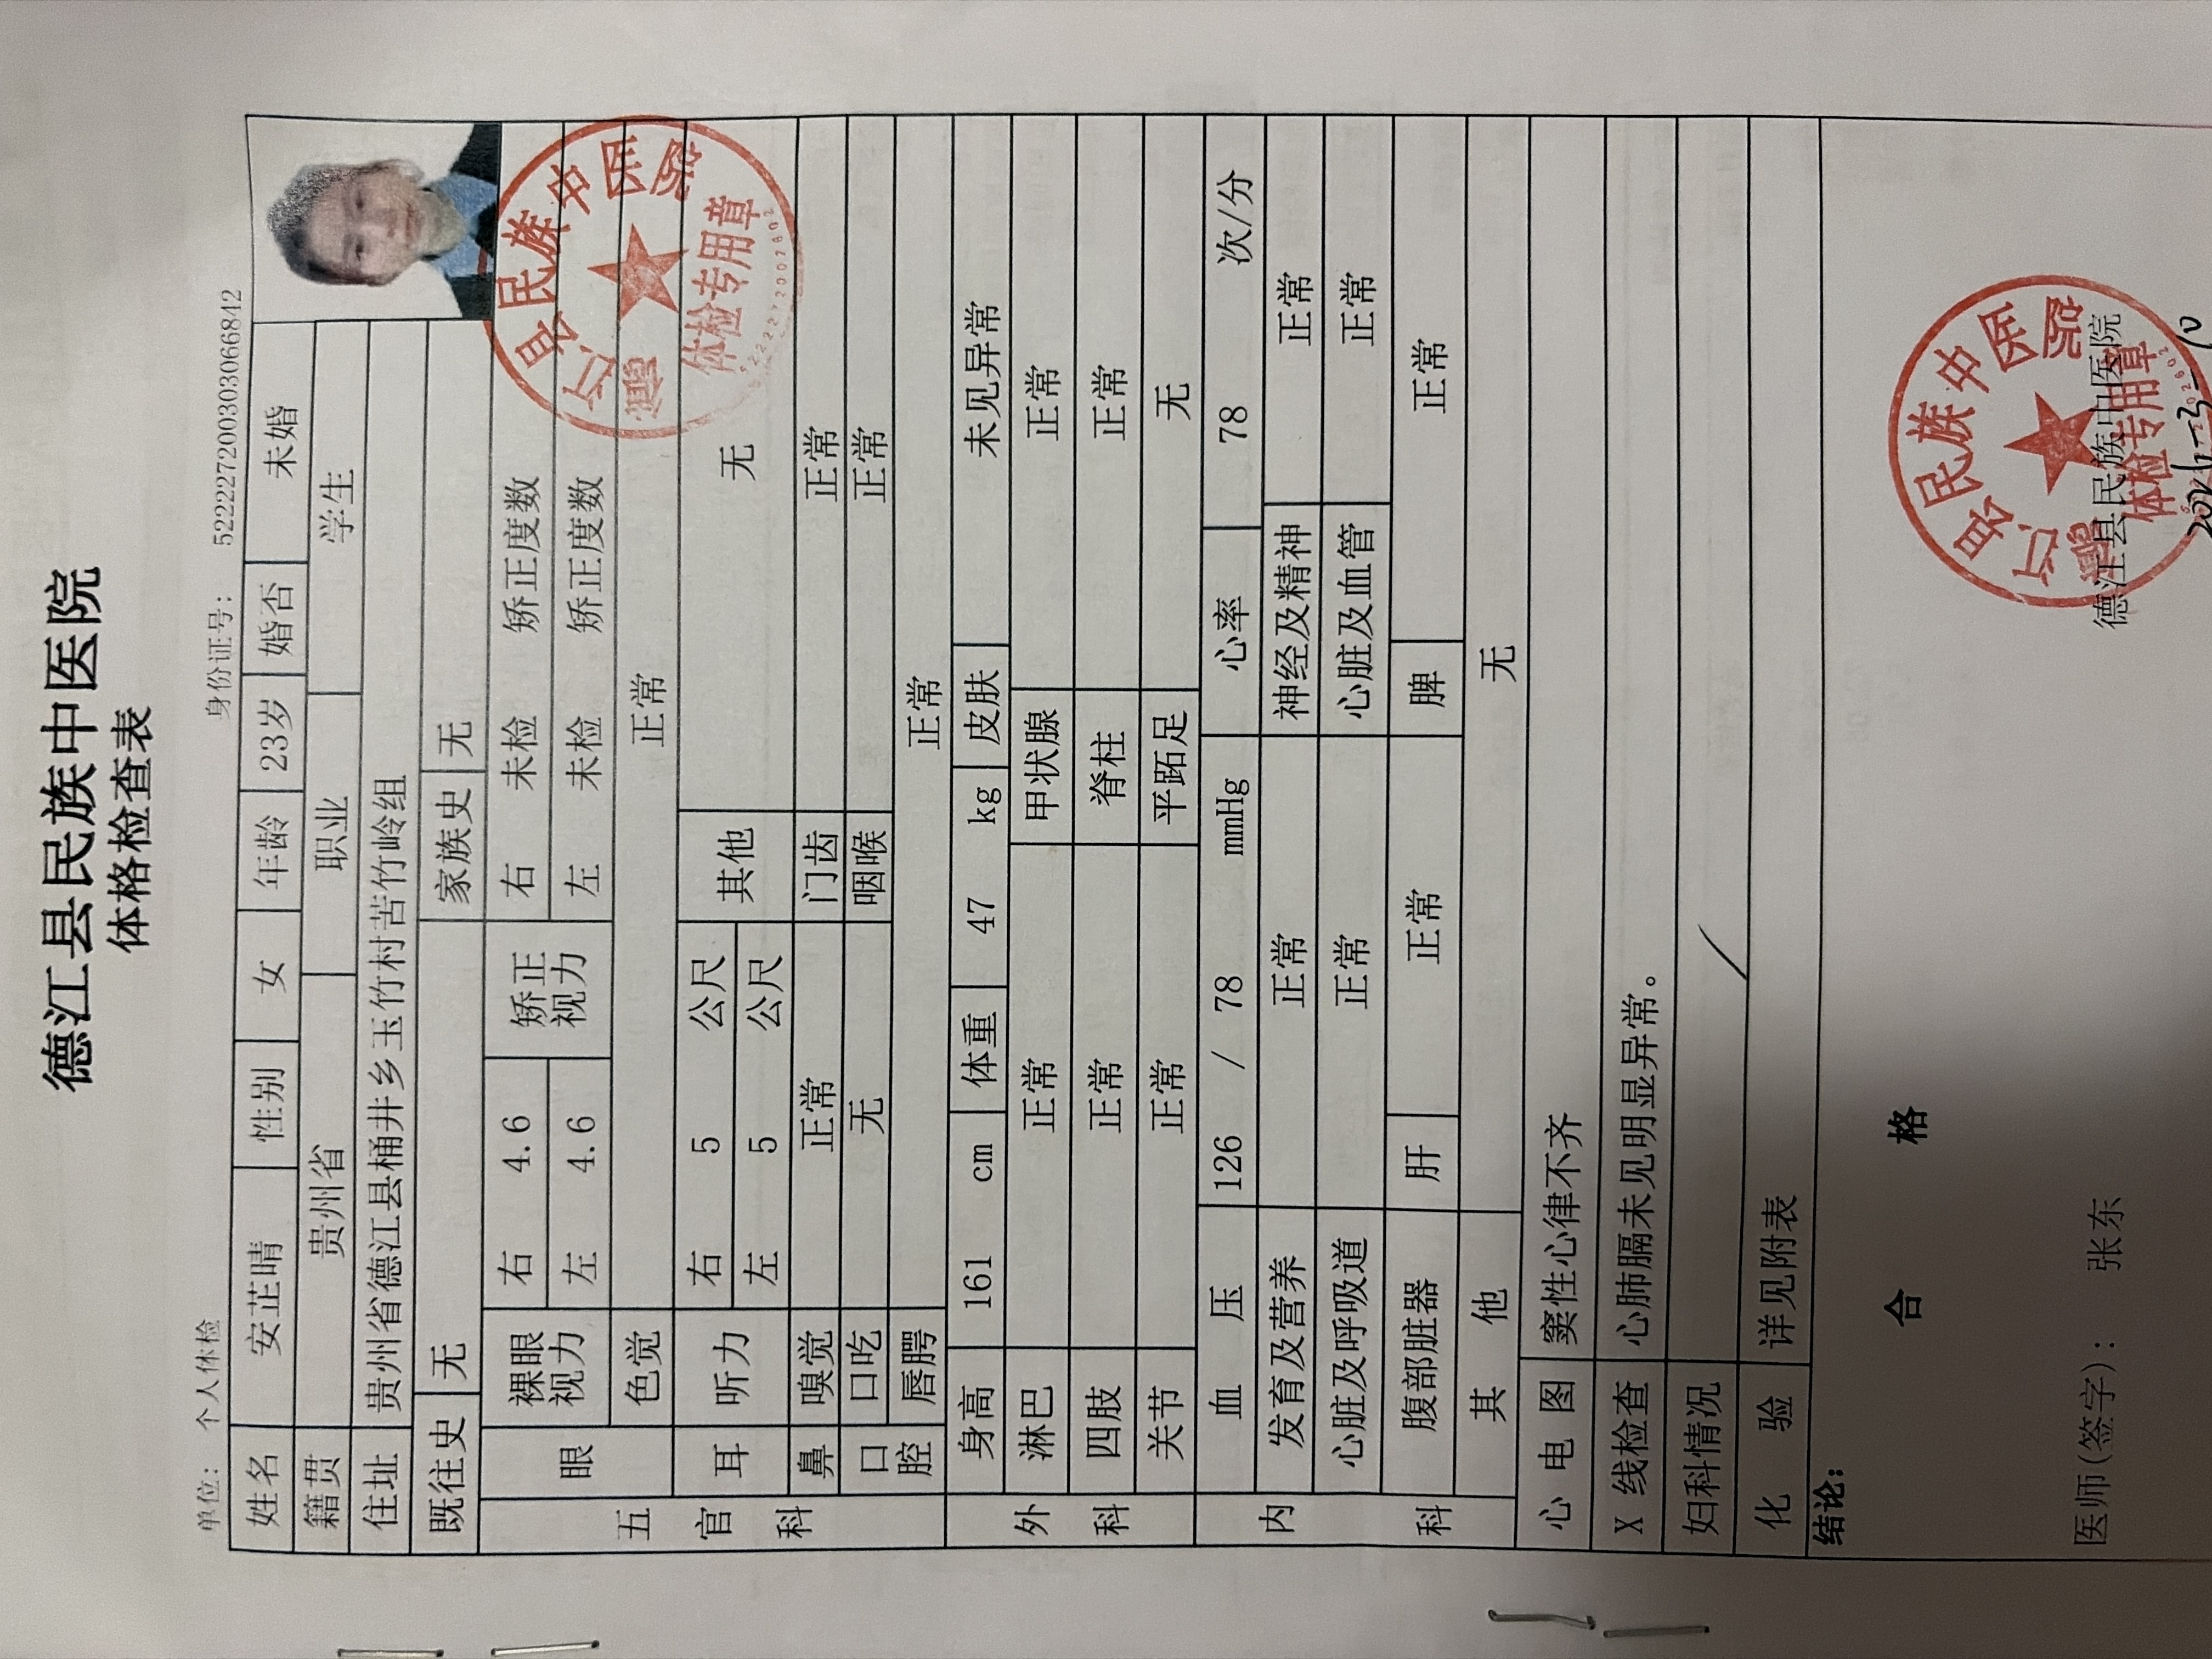 德江县民族中医院
体格检查表
单位： 个人体检 身份证号： 522227200303066842
姓名 安芷晴 性别 女 年龄 23岁 婚否 未婚
籍贯 贵州省 职业 学生
住址 贵州省德江县桶井乡玉竹村苦竹岭组
既往史 无 家族史 无
五官科 眼 裸眼视力 右 4.6 矫正视力 右 未检 矫正度数
左 4.6 左 未检 矫正度数
色觉 正常
耳 听力 右 5 公尺 其他 无
左 5 公尺
鼻 嗅觉 正常 门齿 正常
口腔 口吃 无 咽喉 正常
唇腭 正常
外科 身高 161 cm 体重 47 kg 皮肤 未见异常
淋巴 正常 甲状腺 正常
四肢 正常 脊柱 正常
关节 正常 平跖足 无
内科 血压 126 / 78 mmHg 心率 78 次/分
发育及营养 正常 神经及精神 正常
心脏及呼吸道 正常 心脏及血管 正常
腹部脏器 肝 正常 脾 正常
其他 无
心电图 窦性心律不齐
X线检查 心肺膈未见明显异常。
妇科情况 /
化验 详见附表
结论：
合格
医师(签字)： 张东 德江县民族中医院
德江县民族中医院
体检专用章
德江县民族中医院
体检专用章